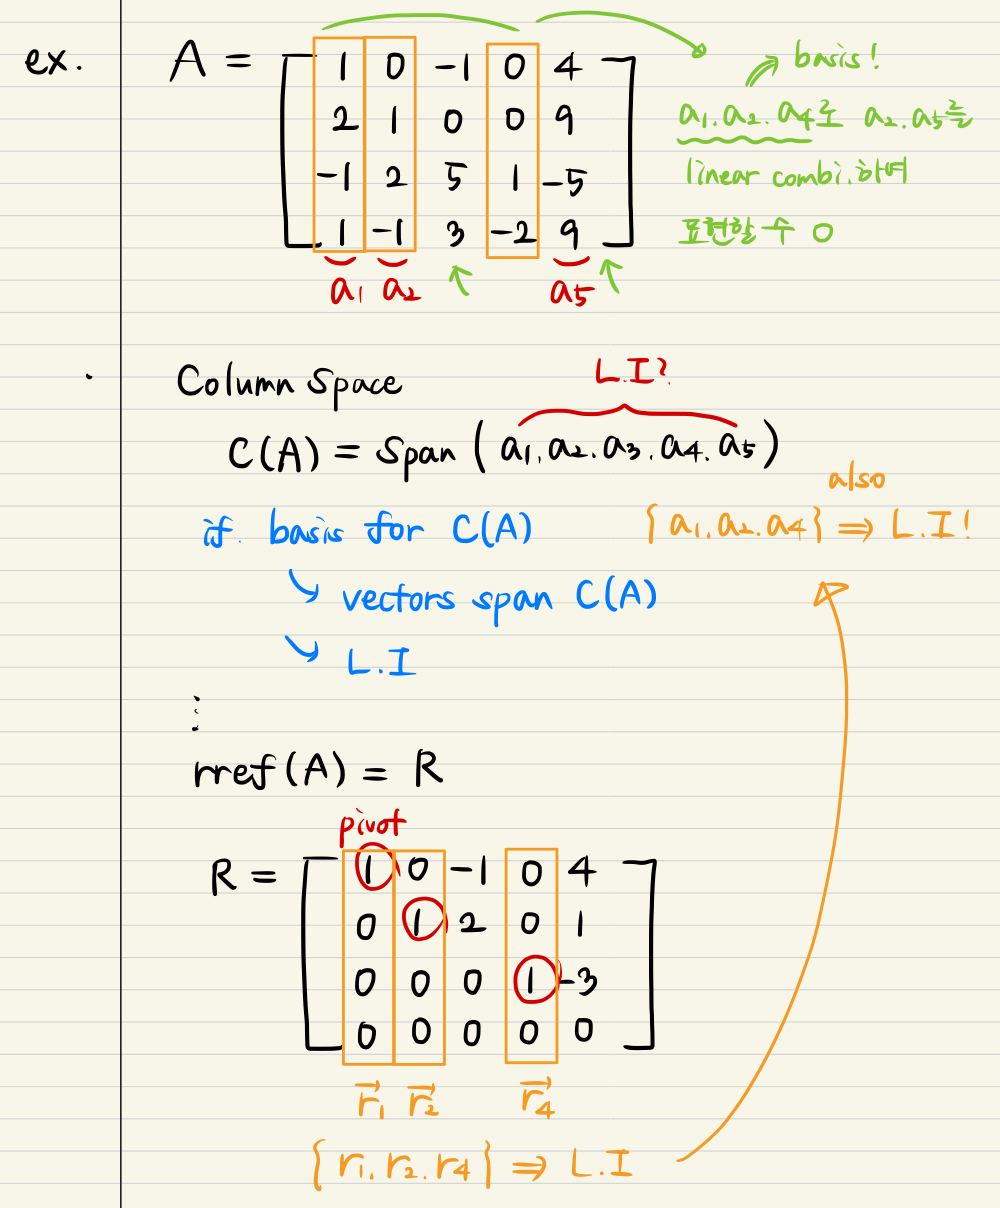 ex. A = [ 1 0 -1 0 4
2 1 0 0 9
-1 2 5 1 -5
1 -1 3 -2 9 ]
a₁ a₂ a₅
basis!
a₁.a₂.a₄로 a₂.a₅를
linear combi.하여
표현할 수 O
Column Space
L.I?
C(A) = Span ( a₁.a₂.a₃.a₄.a₅ )
also
if. basis for C(A)
{a₁.a₂.a₄} ⇒ L.I!
vectors span C(A)
L.I
⋮
rref(A) = R
pivot
R = [ 1 0 -1 0 4
0 1 2 0 1
0 0 0 1 -3
0 0 0 0 0 ]
r⃗₁ r⃗₂ r⃗₄
{r₁.r₂.r₄} ⇒ L.I